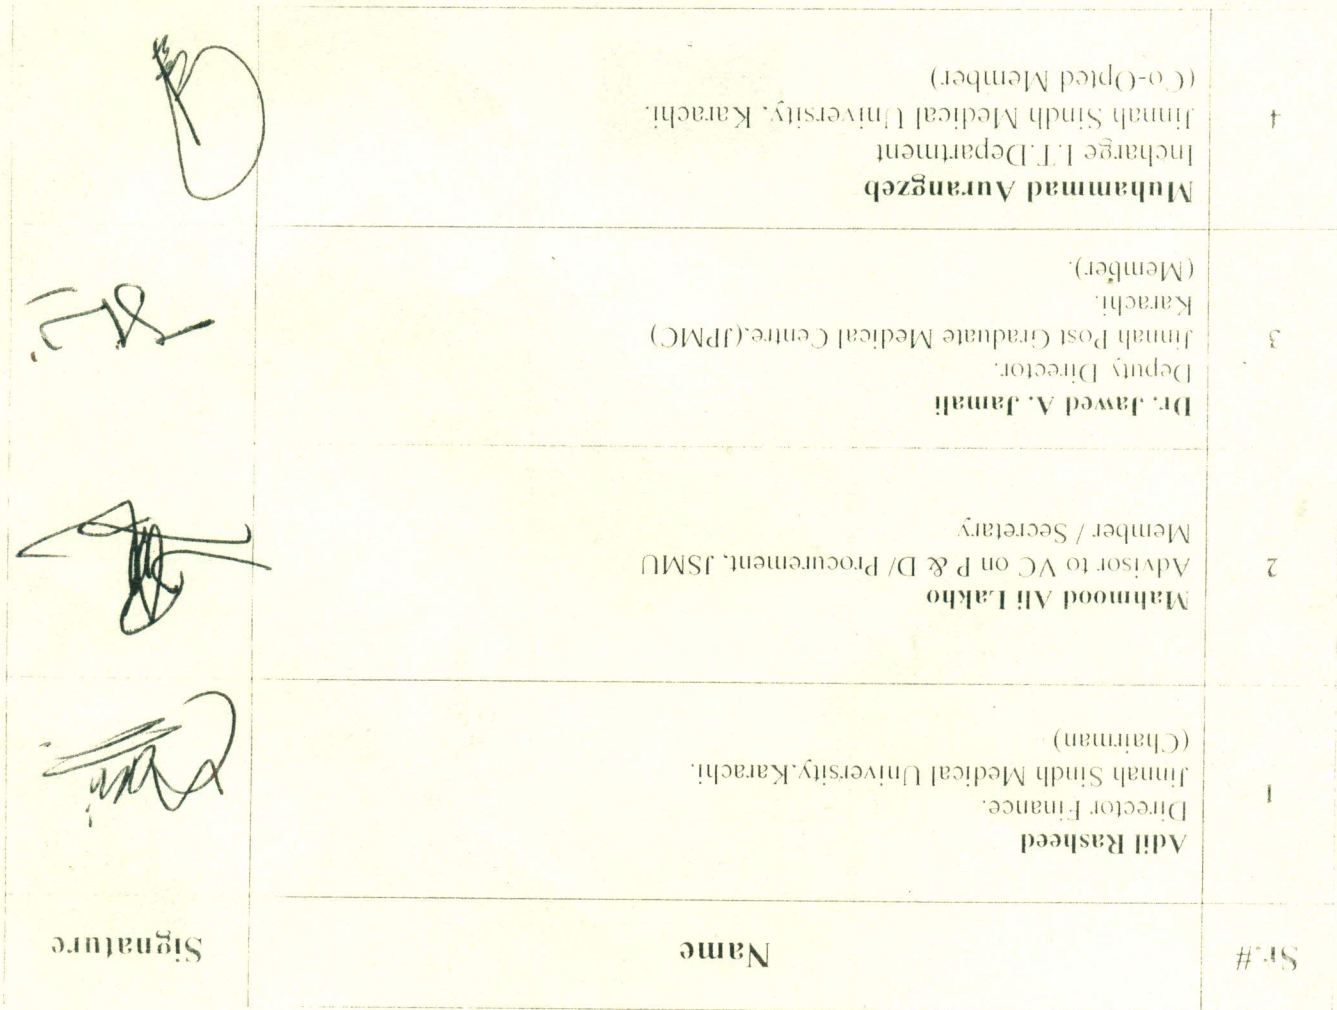 Sr.# Name Signature
1
Adil Rasheed
Director Finance.
Jinnah Sindh Medical University.Karachi.
(Chairman)
2
Mahmood Ali Lakho
Advisor to VC on P & D/ Procurement, JSMU
Member / Secretary
3
Dr. Jawed A. Jamali
Deputy Director.
Jinnah Post Graduate Medical Centre.(JPMC)
Karachi.
(Member).
4
Muhammad Aurangzeb
Incharge I.T.Department
Jinnah Sindh Medical University, Karachi.
(Co-Opted Member)